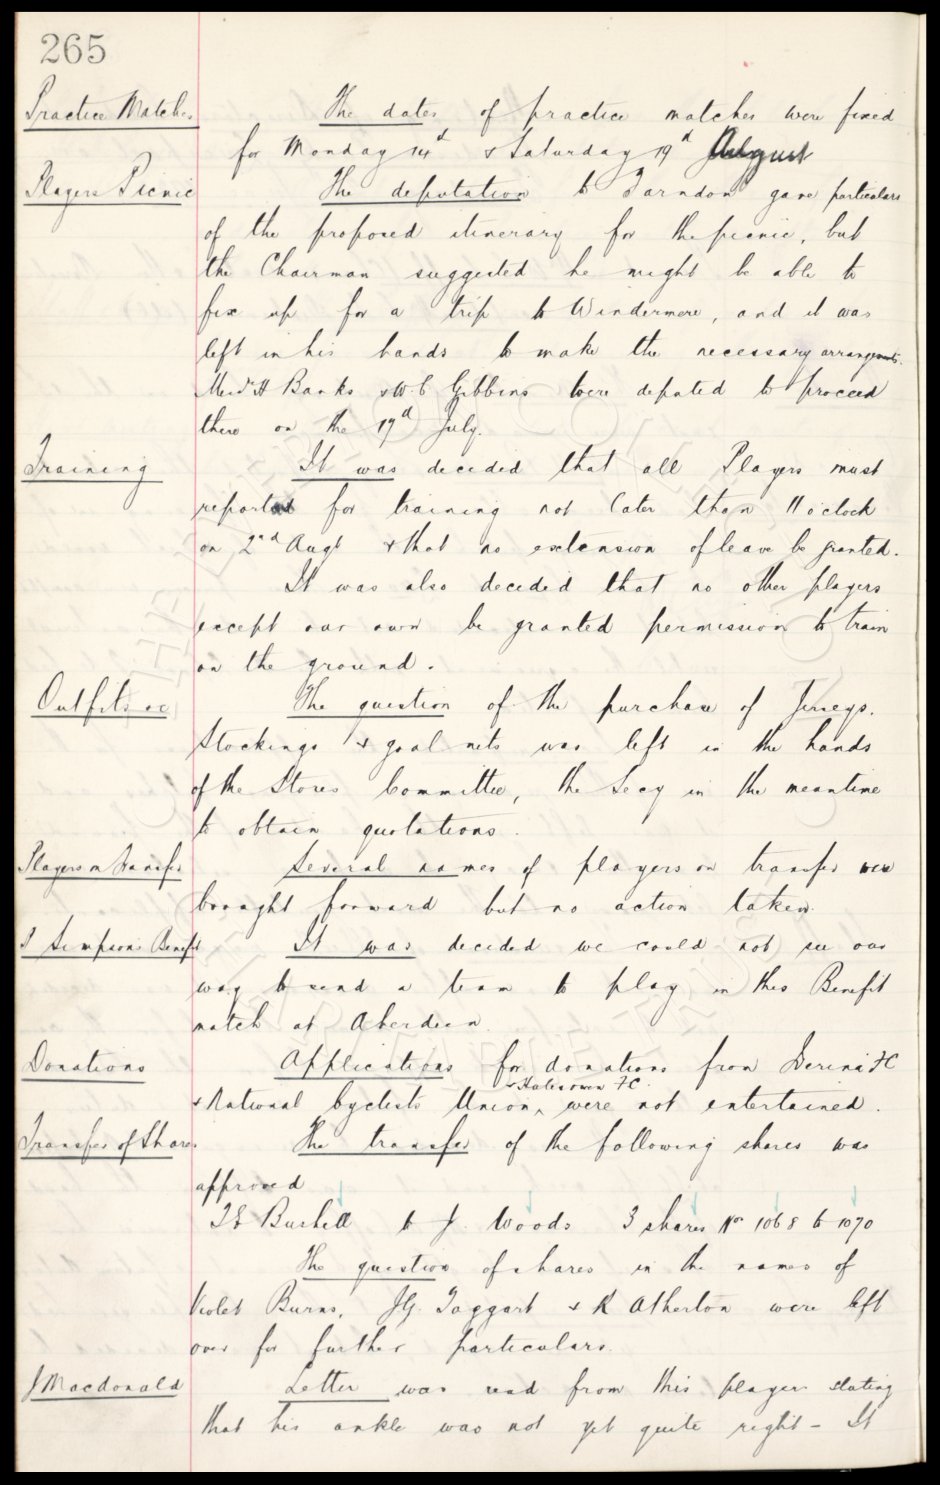 265
Practice Matches
The dates of practice matches were fixed
for Monday 14th & Saturday 19th August
Players Picnic
The deputation to Farndon gave particulars
of the proposed itinerary for the picnic, but
the Chairman suggested he might be able to
fix up for a trip to Windermere, and it was
left in his hands to make the necessary arrangements.
Messrs H Banks & W.C. Gibbins were deputed to proceed
there on the 19th July.
Training
It was decided that all Players must
report for training not later than 11 o'clock
on 2nd Augt & that no extension of leave be granted.
It was also decided that no other players
except our own be granted permission to train
on the ground.
Outfits &c
The question of the purchase of Jerseys.
Stockings & goal nets was left in the hands
of the Stores Committee, the Secy in the meantime
to obtain quotations.
Players on Transfer
Several names of players on transfer were
brought forward but no action taken.
Simpsons Benefit
It was decided we could not see our
way to send a team to play in this Benefit
match at Aberdeen.
Donations
Applications for donations from FC
& Halesowen FC.
& National Cyclists Union, were not entertained.
Transfer of Shares
The transfer of the following shares was
approved
Bushell to J. Woods 3 shares Nos 1068 to 1070
The question of shares in the names of
Violet Burns, J.G. Taggart & R Atherton were left
over for further particulars.
J Macdonald
Letter was read from this player stating
that his ankle was not yet quite right - It